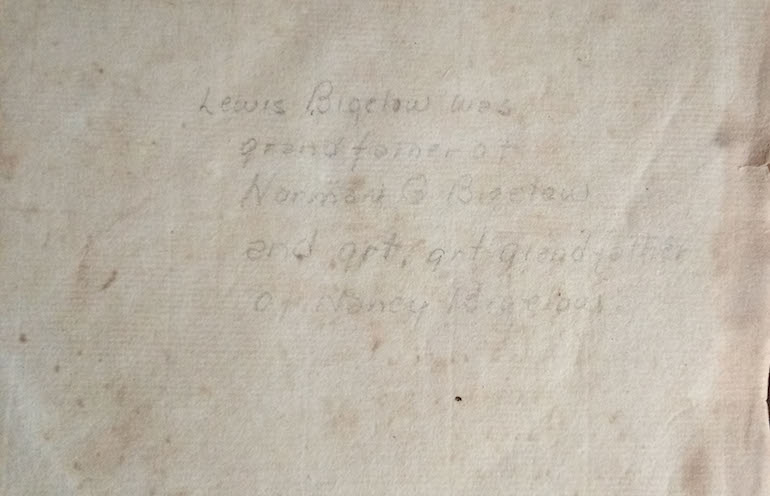 Lewis Bigelow was
grandfather of
Norman G Bigelow
and grt, grt grandfather
of Nancy Bigelow.